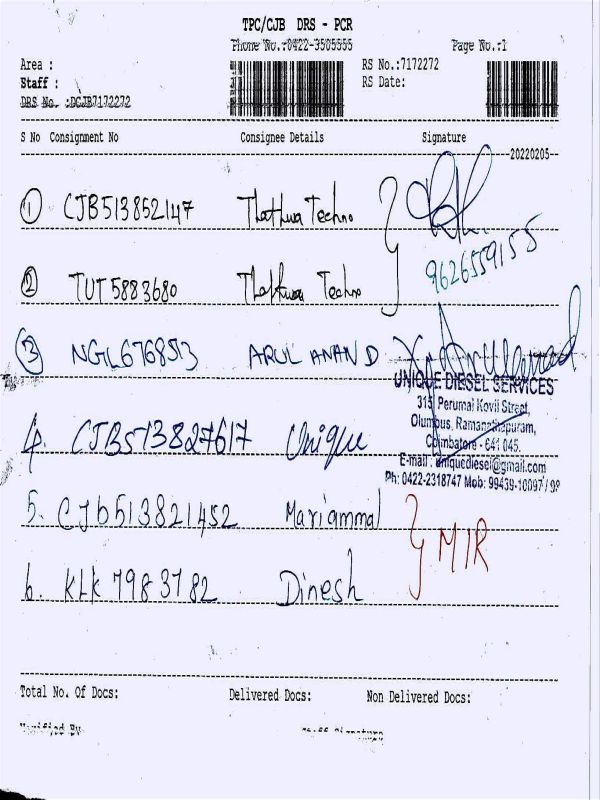 TPC/CJB DRS - PCR
Phone No.:0422-3505555 Page No.:1
Area : RS No.:7172272
Staff : RS Date:
DRS No. :DCJB7172272
S No Consignment No Consignee Details Signature
20220205
1 CJB513852147 Thathwa Techno
9626559155
2 TUT5883680 Thathwa Techno
3 NGL676853 ARUL ANAND
UNIQUE DIESEL SERVICES
315, Perumal Kovil Street,
Olumbus, Ramanathapuram,
Coimbatore - 641 045.
4. CJB513827617 Unique
E-mail : uniquediesel@gmail.com
Ph: 0422-2318747 Mob: 99439-10097 / 98
5. CJB513821452 Mariammal
MIR
6. KLK 7983782 Dinesh
Total No. Of Docs: Delivered Docs: Non Delivered Docs:
Verified By Staff Signature